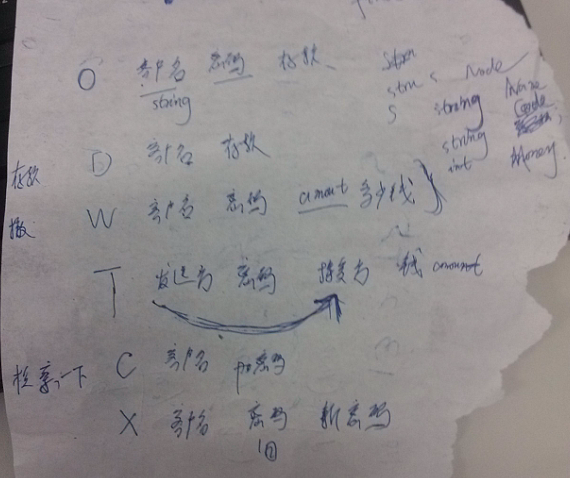 O 客户名 密码 存款
string
stru s Node
string Name
string Code
int Money
存款 D 客户名 存款
W 客户名 密码 amout 多少钱
T 发送者 密码 接受者 钱 amount
检查一下 C 客户名 密码
X 客户名 密码 新密码
旧